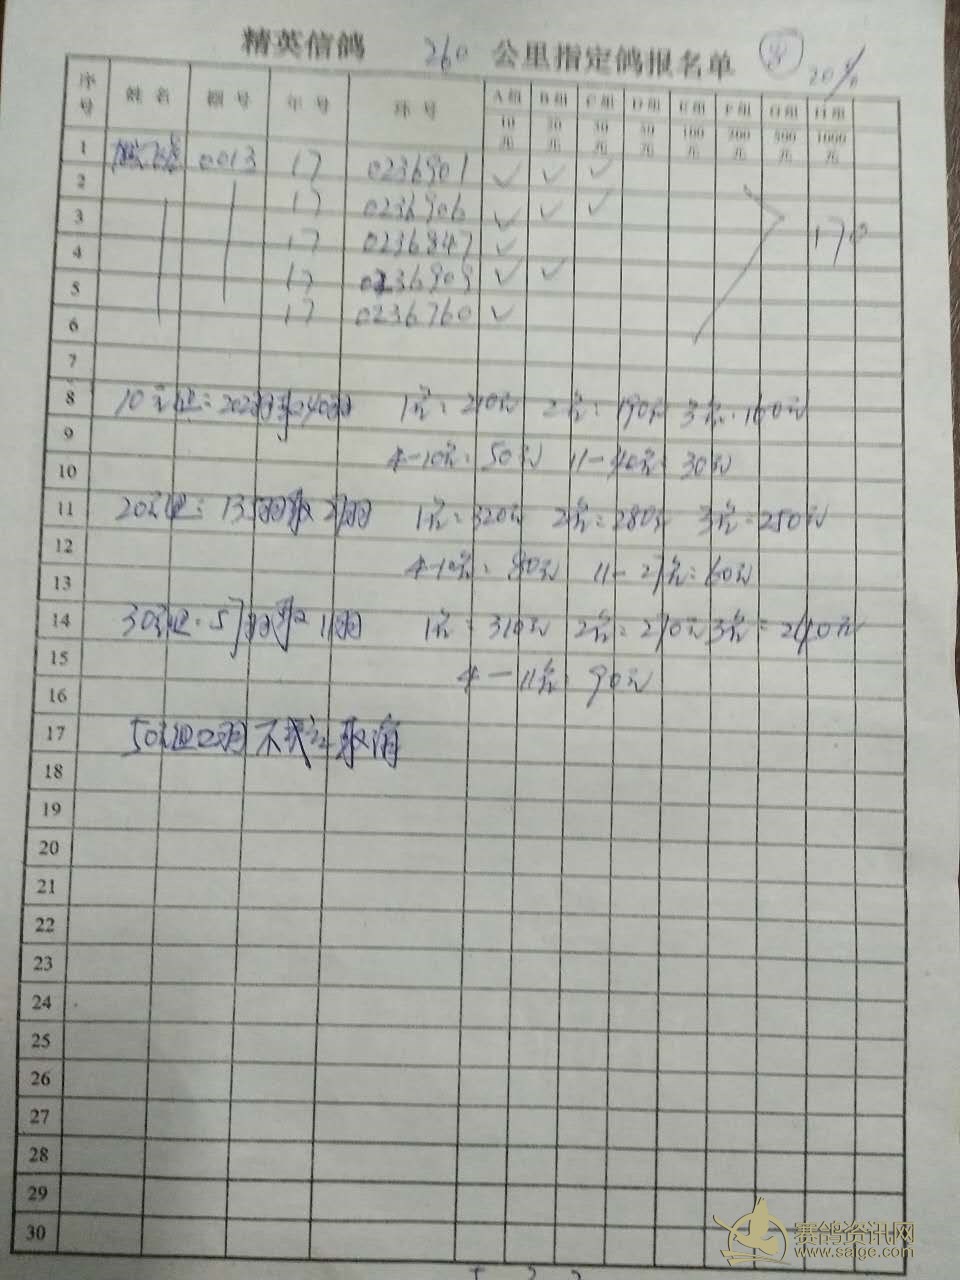 精英信鸽 260 公里指定鸽报名单 20%
序号 姓名 棚号 年号 环号 A组 B组 C组 D组 E组 F组 G组 H组
10元 20元 30元 50元 100元 200元 500元 1000元
1 0013 17 0236901 ✓ ✓ ✓
2 17 0236906 ✓ ✓ ✓
3 17 0236847 ✓ 170
4 17 0236909 ✓ ✓
5 17 0236760 ✓
6
7
8 10元组:202羽取40羽 1名:210元 2名:190元 3名:160元
9 4-10名:50元 11-40名:30元
10
11 20元组:135羽取27羽 1名:320元 2名:280元 3名:250元
12 4-10名:80元 11-27名:60元
13
14 30元组:57羽取11羽 1名:310元 2名:270元 3名:240元
15 4-11名:90元
16
17 50元组2羽不成立取消
18
19
20
21
22
23
24
25
26
27
28
29
30
赛鸽资讯网
www.saige.com